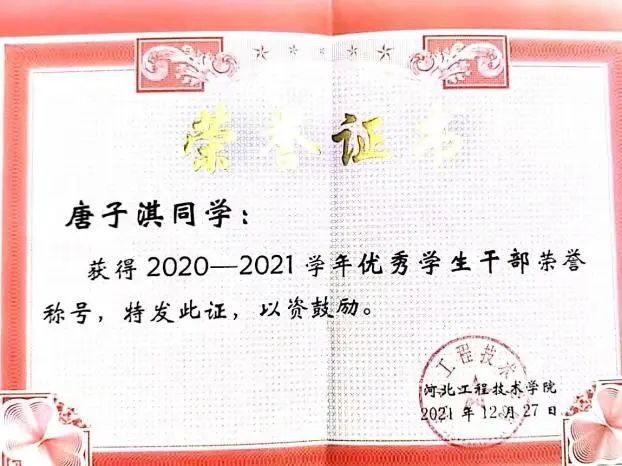 荣誉证书
唐子淇同学：
获得2020—2021学年优秀学生干部荣誉
称号，特发此证，以资鼓励。
工程技术
河北工程技术学院
2021年12月27日